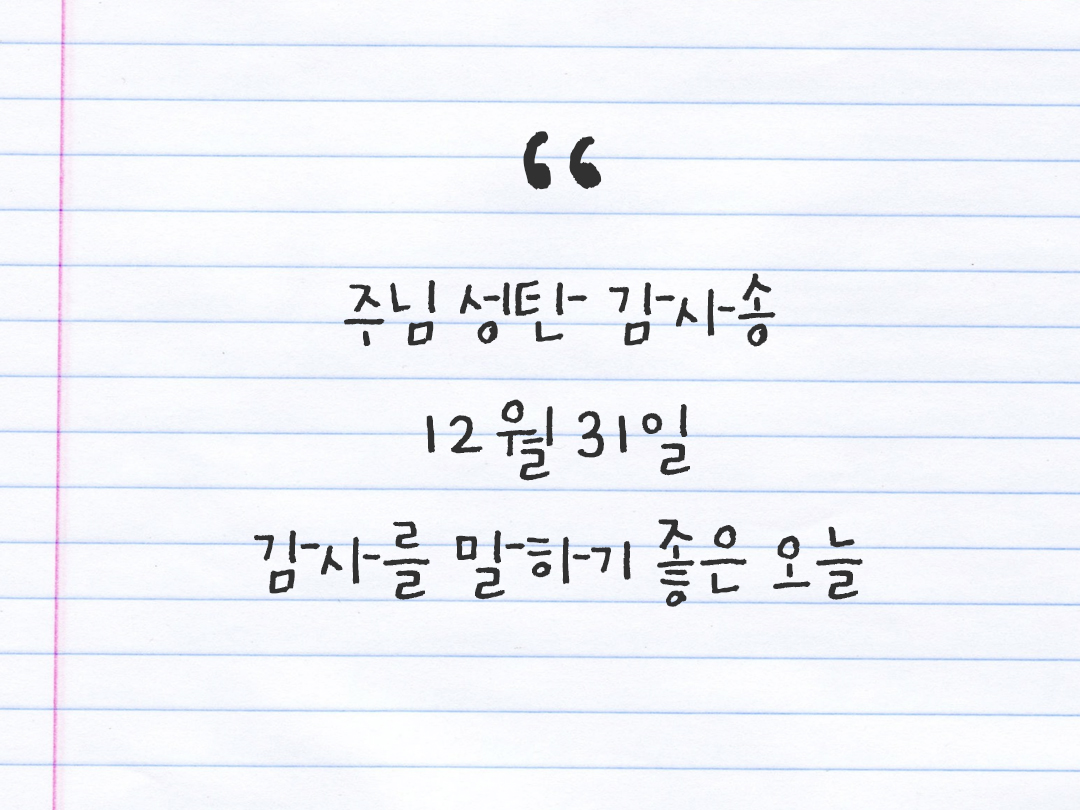 “
주님 성탄 감사송
12월 31일
감사를 말하기 좋은 오늘